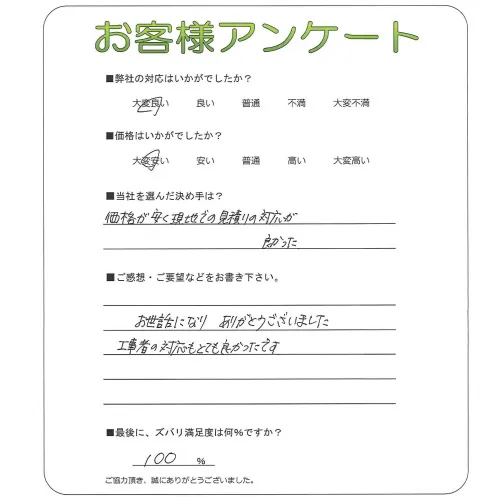 お客様アンケート
■弊社の対応はいかがでしたか？
大変良い 良い 普通 不満 大変不満
■価格はいかがでしたか？
大変安い 安い 普通 高い 大変高い
■当社を選んだ決め手は？
価格が安く現地での見積りの対応が
良かった
■ご感想・ご要望などをお書き下さい。
お世話になり ありがとうございました
工事者の対応もとても良かったです
■最後に、ズバリ満足度は何%ですか？
100 %
ご協力頂き、誠にありがとうございました。